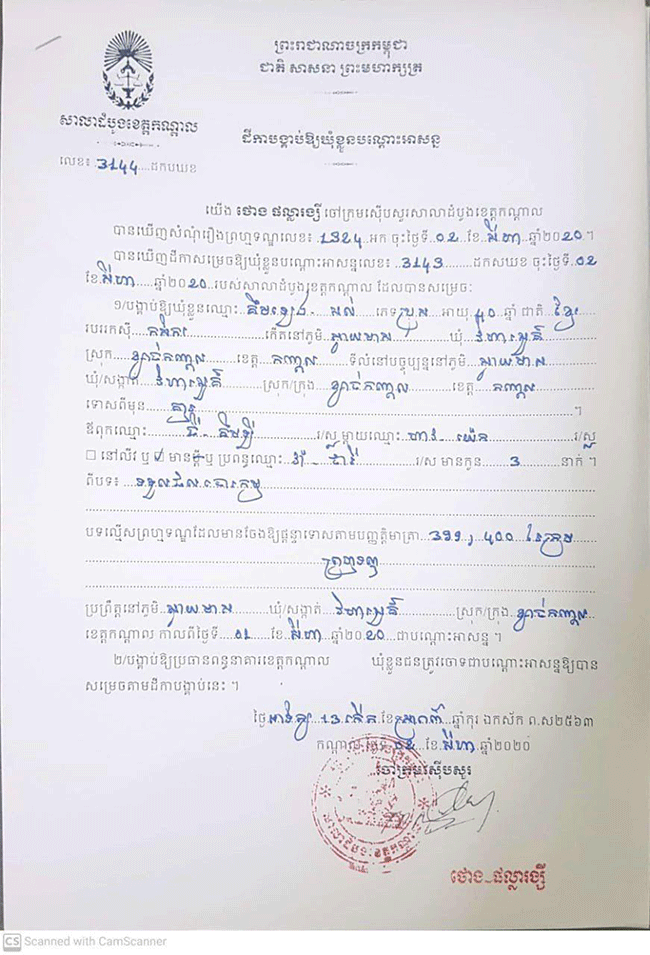 ព្រះរាជាណាចក្រកម្ពុជា
ជាតិ សាសនា ព្រះមហាក្សត្រ
សាលាដំបូងខេត្តកណ្ដាល
ដីកាបង្គាប់ឱ្យឃុំខ្លួនបណ្ដោះអាសន្ន
លេខ៖ 3144 ដកបឃខ
យើង ថោង ផល្លារង្ស៊ី ចៅក្រមស៊ើបសួរសាលាដំបូងខេត្តកណ្ដាល
បានឃើញសំណុំរឿងព្រហ្មទណ្ឌលេខ៖ 1324 អក ចុះថ្ងៃទី 02 ខែ សីហា ឆ្នាំ២០20 ។
បានឃើញដីកាសម្រេចឱ្យឃុំខ្លួនបណ្ដោះអាសន្នលេខ៖ 3143 ដកសឃខ ចុះថ្ងៃទី 02
ខែ សីហា ឆ្នាំ២០20 របស់សាលាដំបូងខេត្តកណ្ដាល ដែលបានសម្រេច៖
១/បង្គាប់ឱ្យឃុំខ្លួនឈ្មោះ ភេទ ប្រុស អាយុ 40 ឆ្នាំ ជាតិ ខ្មែរ
របររកស៊ី កសិករ កើតនៅភូមិ ស្វាយមាស ឃុំ វិហារសួគ៌
ស្រុក ខ្សាច់កណ្ដាល ខេត្ត កណ្ដាល ទីលំនៅបច្ចុប្បន្ននៅភូមិ ស្វាយមាស
ឃុំ/សង្កាត់ វិហារសួគ៌ ស្រុក/ក្រុង ខ្សាច់កណ្ដាល ខេត្ត កណ្ដាល
ទោសពីមុន គ្មាន ។
ឪពុកឈ្មោះ រ/ស្ល ម្ដាយឈ្មោះ រ/ស្ល
☐ នៅលីវ ឬ មានប្ដី ឬ ប្រពន្ធឈ្មោះ រ/ស មានកូន 3 នាក់ ។
ពីបទ៖ ទទួលផលចោរកម្ម
បទល្មើសព្រហ្មទណ្ឌដែលមានចែងឱ្យផ្ដន្ទាទោសតាមបញ្ញត្តិមាត្រា ៣៩៩, ៤០០ នៃក្រម
ព្រហ្មទណ្ឌ
ប្រព្រឹត្តនៅភូមិ ស្វាយមាស ឃុំ/សង្កាត់ វិហារសួគ៌ ស្រុក/ក្រុង ខ្សាច់កណ្ដាល
ខេត្តកណ្ដាល កាលពីថ្ងៃទី 01 ខែ សីហា ឆ្នាំ២០20 ជាបណ្ដោះអាសន្ន ។
២/បង្គាប់ឱ្យប្រធានពន្ធនាគារខេត្តកណ្ដាល ឃុំខ្លួនជនត្រូវចោទជាបណ្ដោះអាសន្នឱ្យបាន
សម្រេចតាមដីកាបង្គាប់នេះ ។
ថ្ងៃ អាទិត្យ 13 កើត ខែ ស្រាពណ៍ ឆ្នាំកុរ ឯកស័ក ព.ស២៥៦៣
កណ្ដាល ថ្ងៃទី 02 ខែ សីហា ឆ្នាំ២០២០
ចៅក្រមស៊ើបសួរ
ថោង ផល្លារង្ស៊ី
CS Scanned with CamScanner